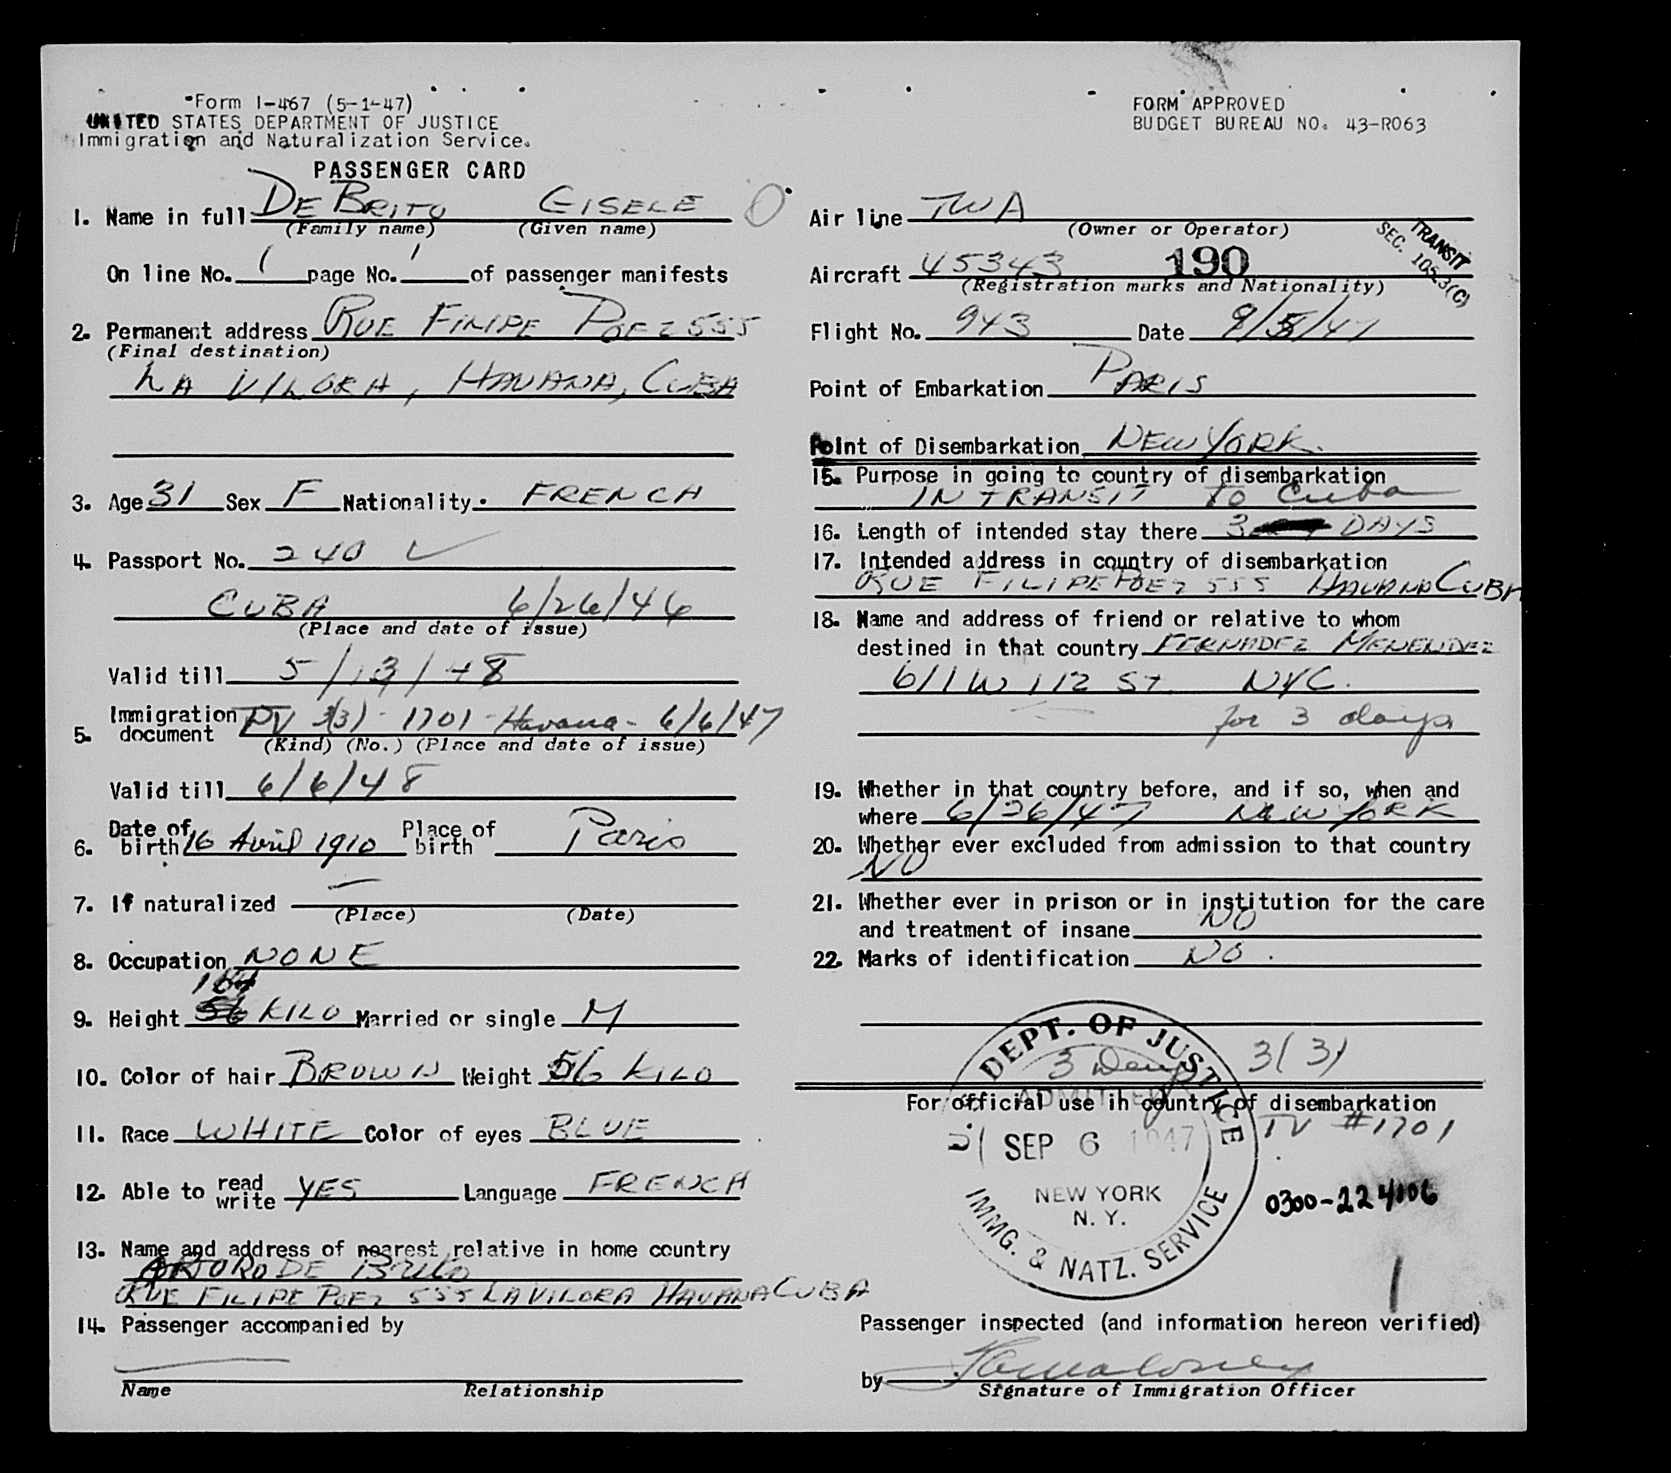 Form I-467 (5-1-47)
UNITED STATES DEPARTMENT OF JUSTICE
Immigration and Naturalization Service.
PASSENGER CARD
1. Name in full DE BRITO GISELE
(Family name) (Given name)
On line No. 1 page No. 1 of passenger manifests
2. Permanent address RUE FILIPE POEZ 555
(Final destination)
LA VILORA, HAVANA, CUBA
3. Age 31 Sex F Nationality FRENCH
4. Passport No. 240
CUBA 6/26/46
(Place and date of issue)
Valid till 5/13/48
5. Immigration document TV 3(3) - 1701 - Havana - 6/6/47
(Kind) (No.) (Place and date of issue)
Valid till 6/6/48
6. Date of birth 16 Avril 1910 Place of birth Paris
7. If naturalized —
(Place) (Date)
8. Occupation NONE
164
9. Height 56 KILO Married or single M
10. Color of hair BROWN Weight 56 KILO
11. Race WHITE Color of eyes BLUE
12. Able to read write YES Language FRENCH
13. Name and address of nearest relative in home country
ARTORO DE Brito
RUE FILIPE POEZ 555 LA VILORA HAVANA CUBA
14. Passenger accompanied by
Name Relationship
FORM APPROVED
BUDGET BUREAU NO. 43-R063
Air line TWA
(Owner or Operator)
TRANSIT
SEC. 105.3(C)
Aircraft 45343 190
(Registration marks and Nationality)
Flight No. 943 Date 9/5/47
Point of Embarkation PARIS
Point of Disembarkation NEW YORK.
15. Purpose in going to country of disembarkation
IN TRANSIT to Cuba
16. Length of intended stay there 3 DAYS
17. Intended address in country of disembarkation
RUE FILIPE POEZ 555 HAVANA CUBA
18. Name and address of friend or relative to whom
destined in that country FERNADEZ MENENDEZ
611 W 112 St. NYC.
for 3 days
19. Whether in that country before, and if so, when and
where 6/26/47 NEW YORK
20. Whether ever excluded from admission to that country
NO
21. Whether ever in prison or in institution for the care
and treatment of insane NO
22. Marks of identification NO.
3 Days 3(3)
For official use in country of disembarkation
U.S. DEPT. OF JUSTICE
ADMITTED
SEP 6 1947
NEW YORK
N. Y.
IMMG. & NATZ. SERVICE
TV #1701
0300-224106
Passenger inspected (and information hereon verified)
by
Signature of Immigration Officer